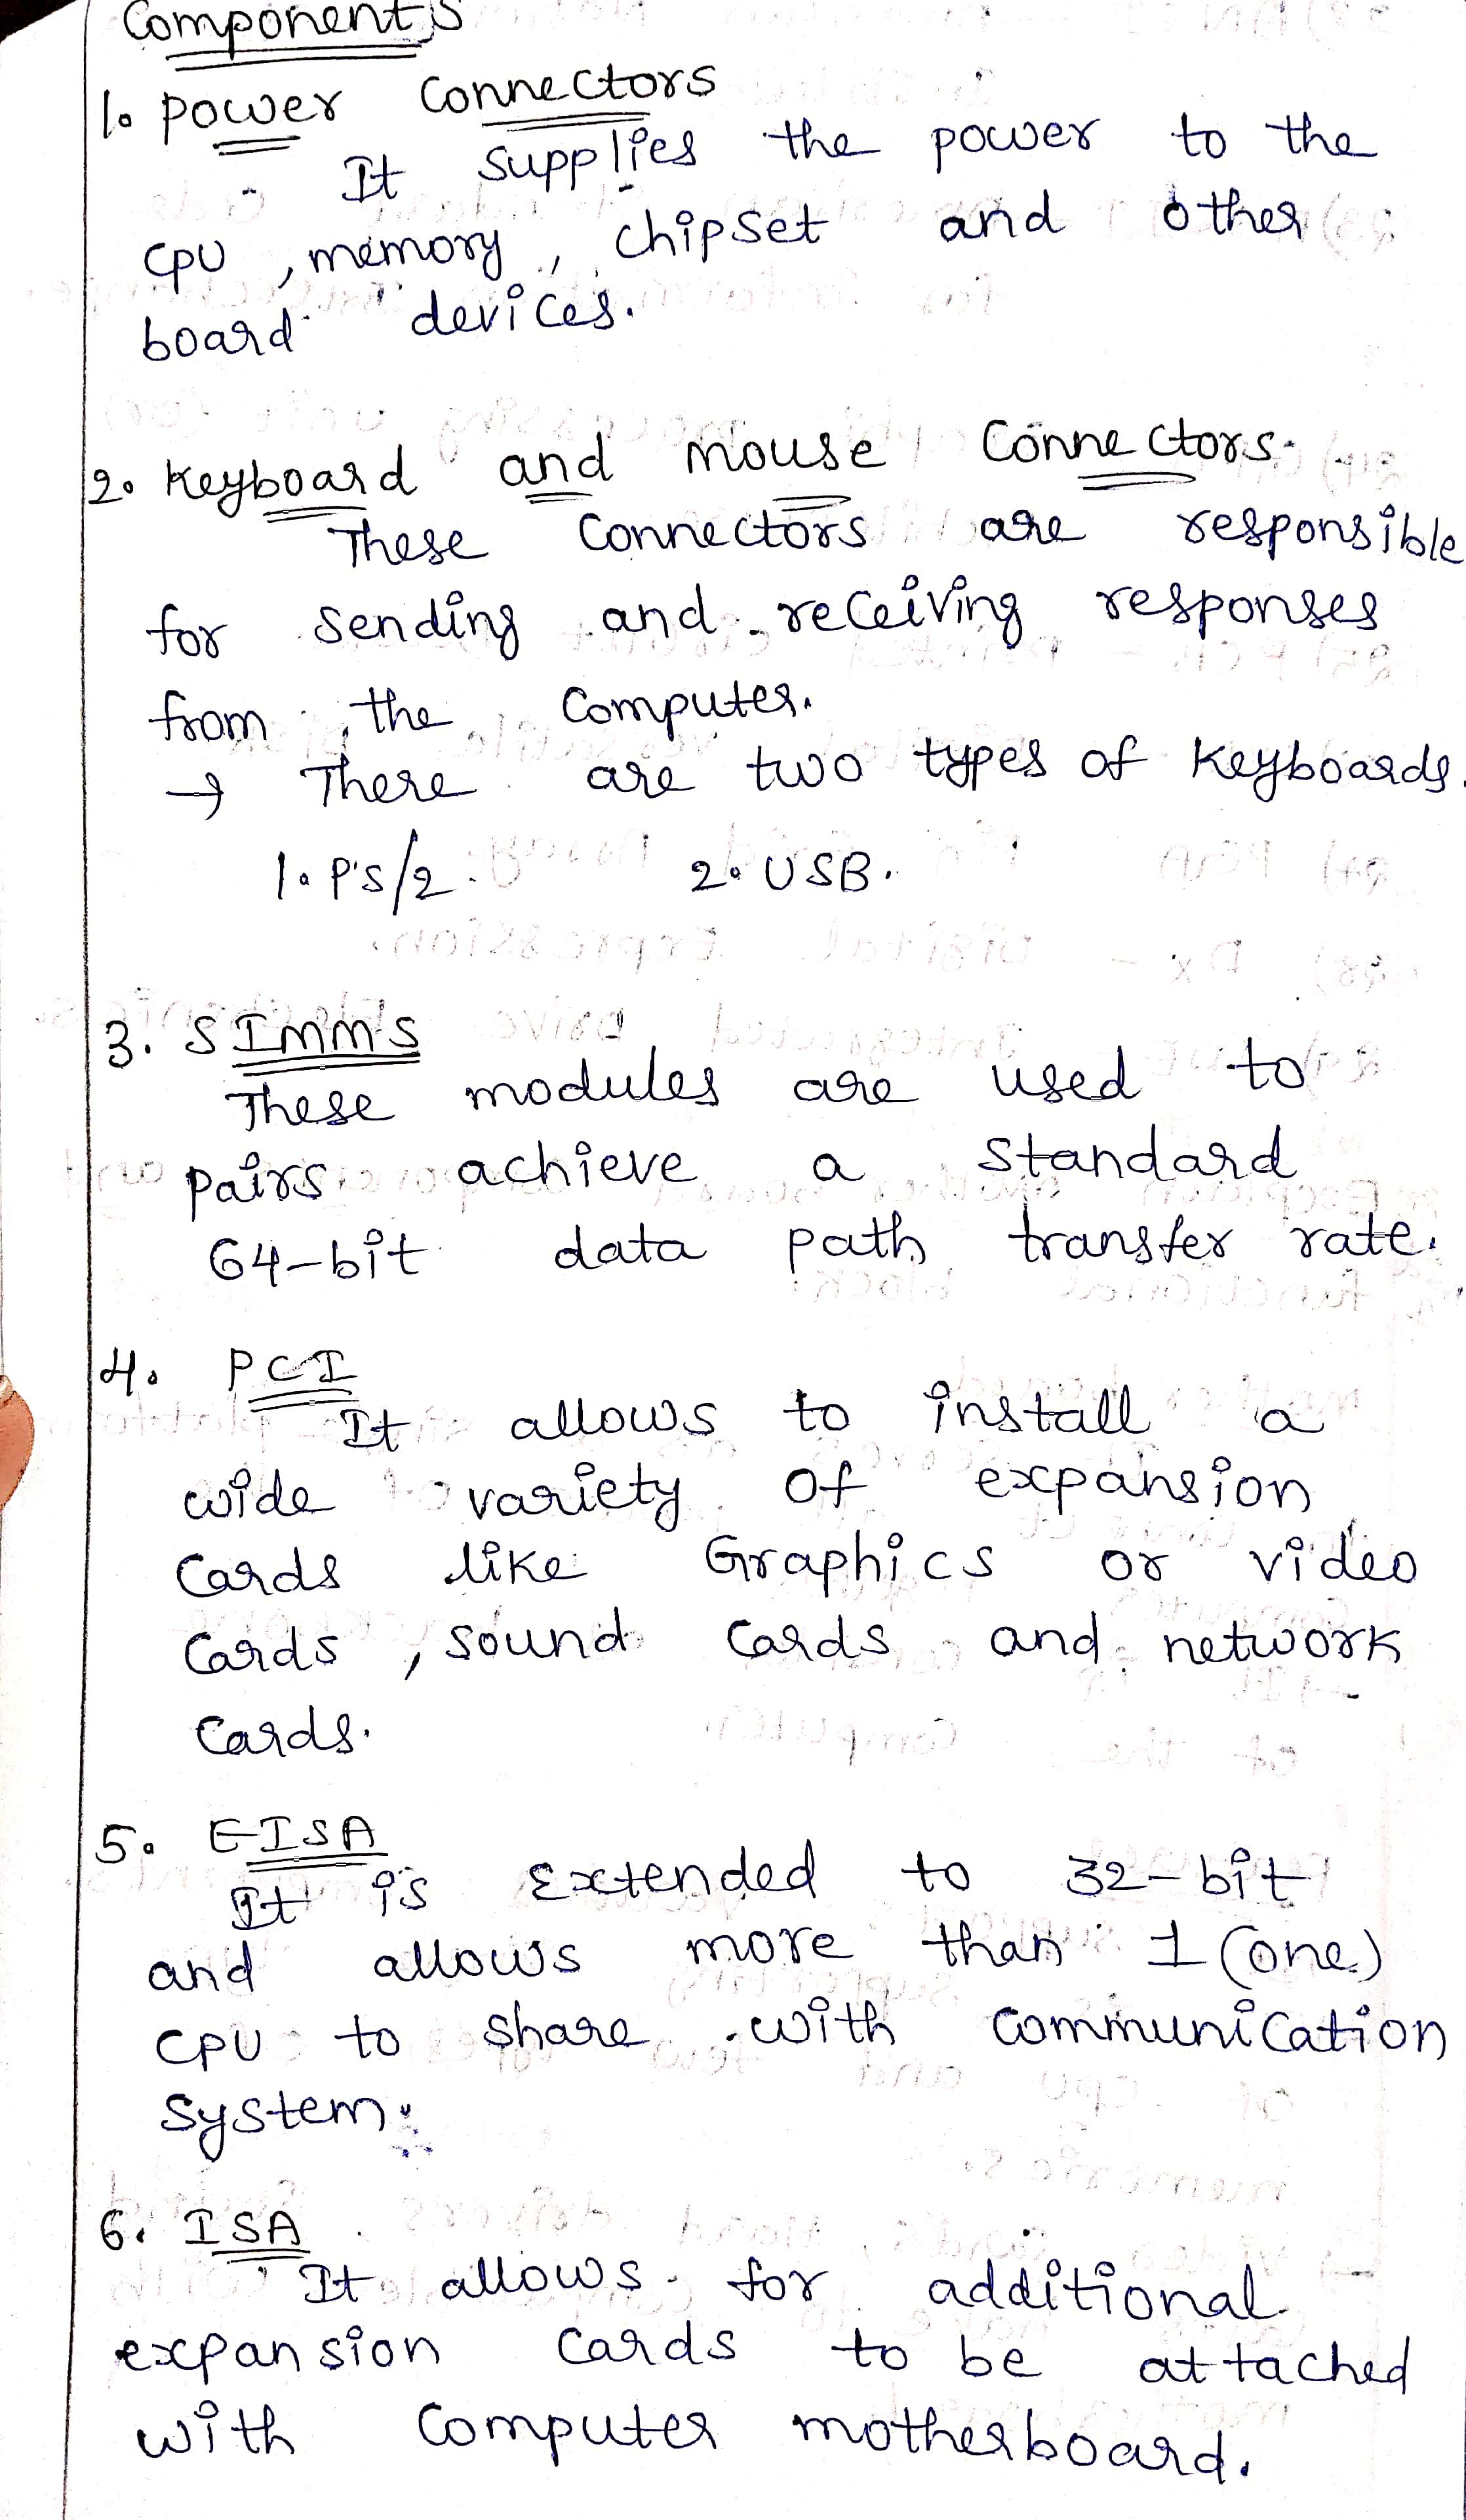 Components
1. Power Connectors
It supplies the power to the
CPU, memory, chipset and other
board devices.
2. Keyboard and mouse Connectors
These Connectors are responsible
for sending and receiving responses
from the Computer.
→ There are two types of Keyboards.
1. P's/2 2. USB.
3. SIMM's
These modules are used to
pairs achieve a standard
64-bit data path transfer rate.
4. PCI
It allows to install a
wide variety of expansion
Cards like Graphics or video
Cards, sound Cards and network
Cards.
5. EISA
It is Extended to 32-bit
and allows more than 1 (one)
CPU to share with Communication
System.
6. ISA
It allows for additional
expansion Cards to be attached
with Computer motherboard.